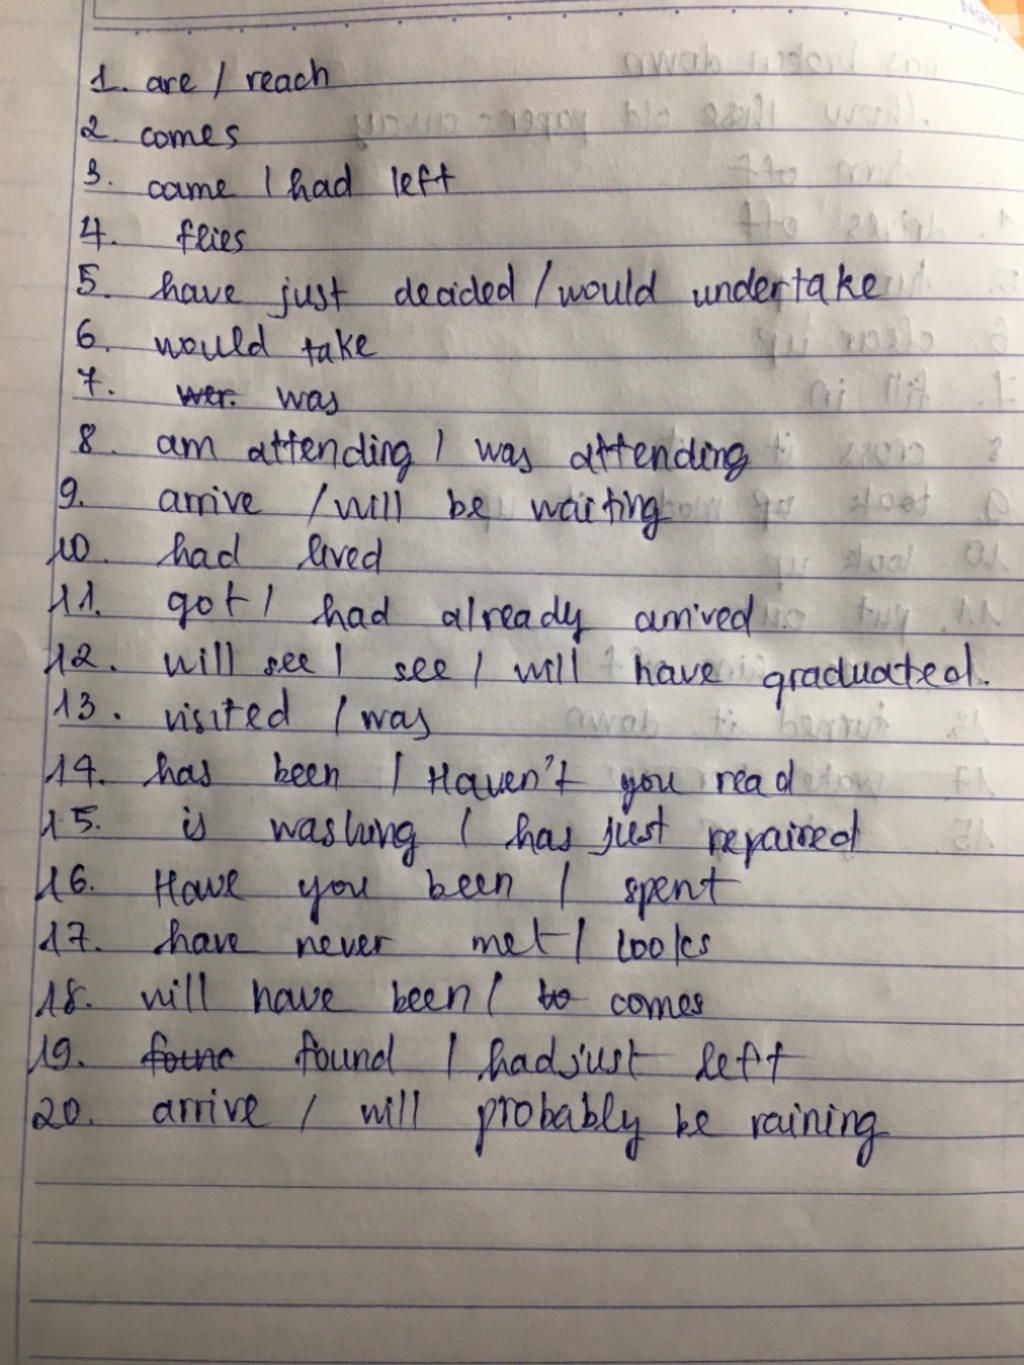 1. are / reach
2. comes
3. came / had left
4. flies
5. have just decided / would undertake
6. would take
7. wer. was
8. am attending / was attending
9. arrive / will be waiting
10. had lived
11. got / had already arrived
12. will see / see / will have graduated.
13. visited / was
14. has been / Haven't you read
15. is washing / has just repaired
16. Have you been / spent
17. have never met / looks
18. will have been / to comes
19. founc found / had just left
20. arrive / will probably be raining